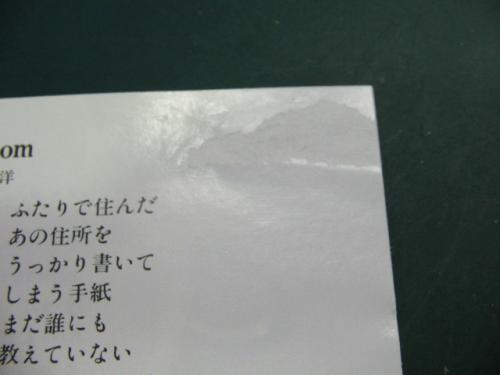 om
洋
ふたりで住んだ
あの住所を
うっかり書いて
しまう手紙
まだ誰にも
教えていない